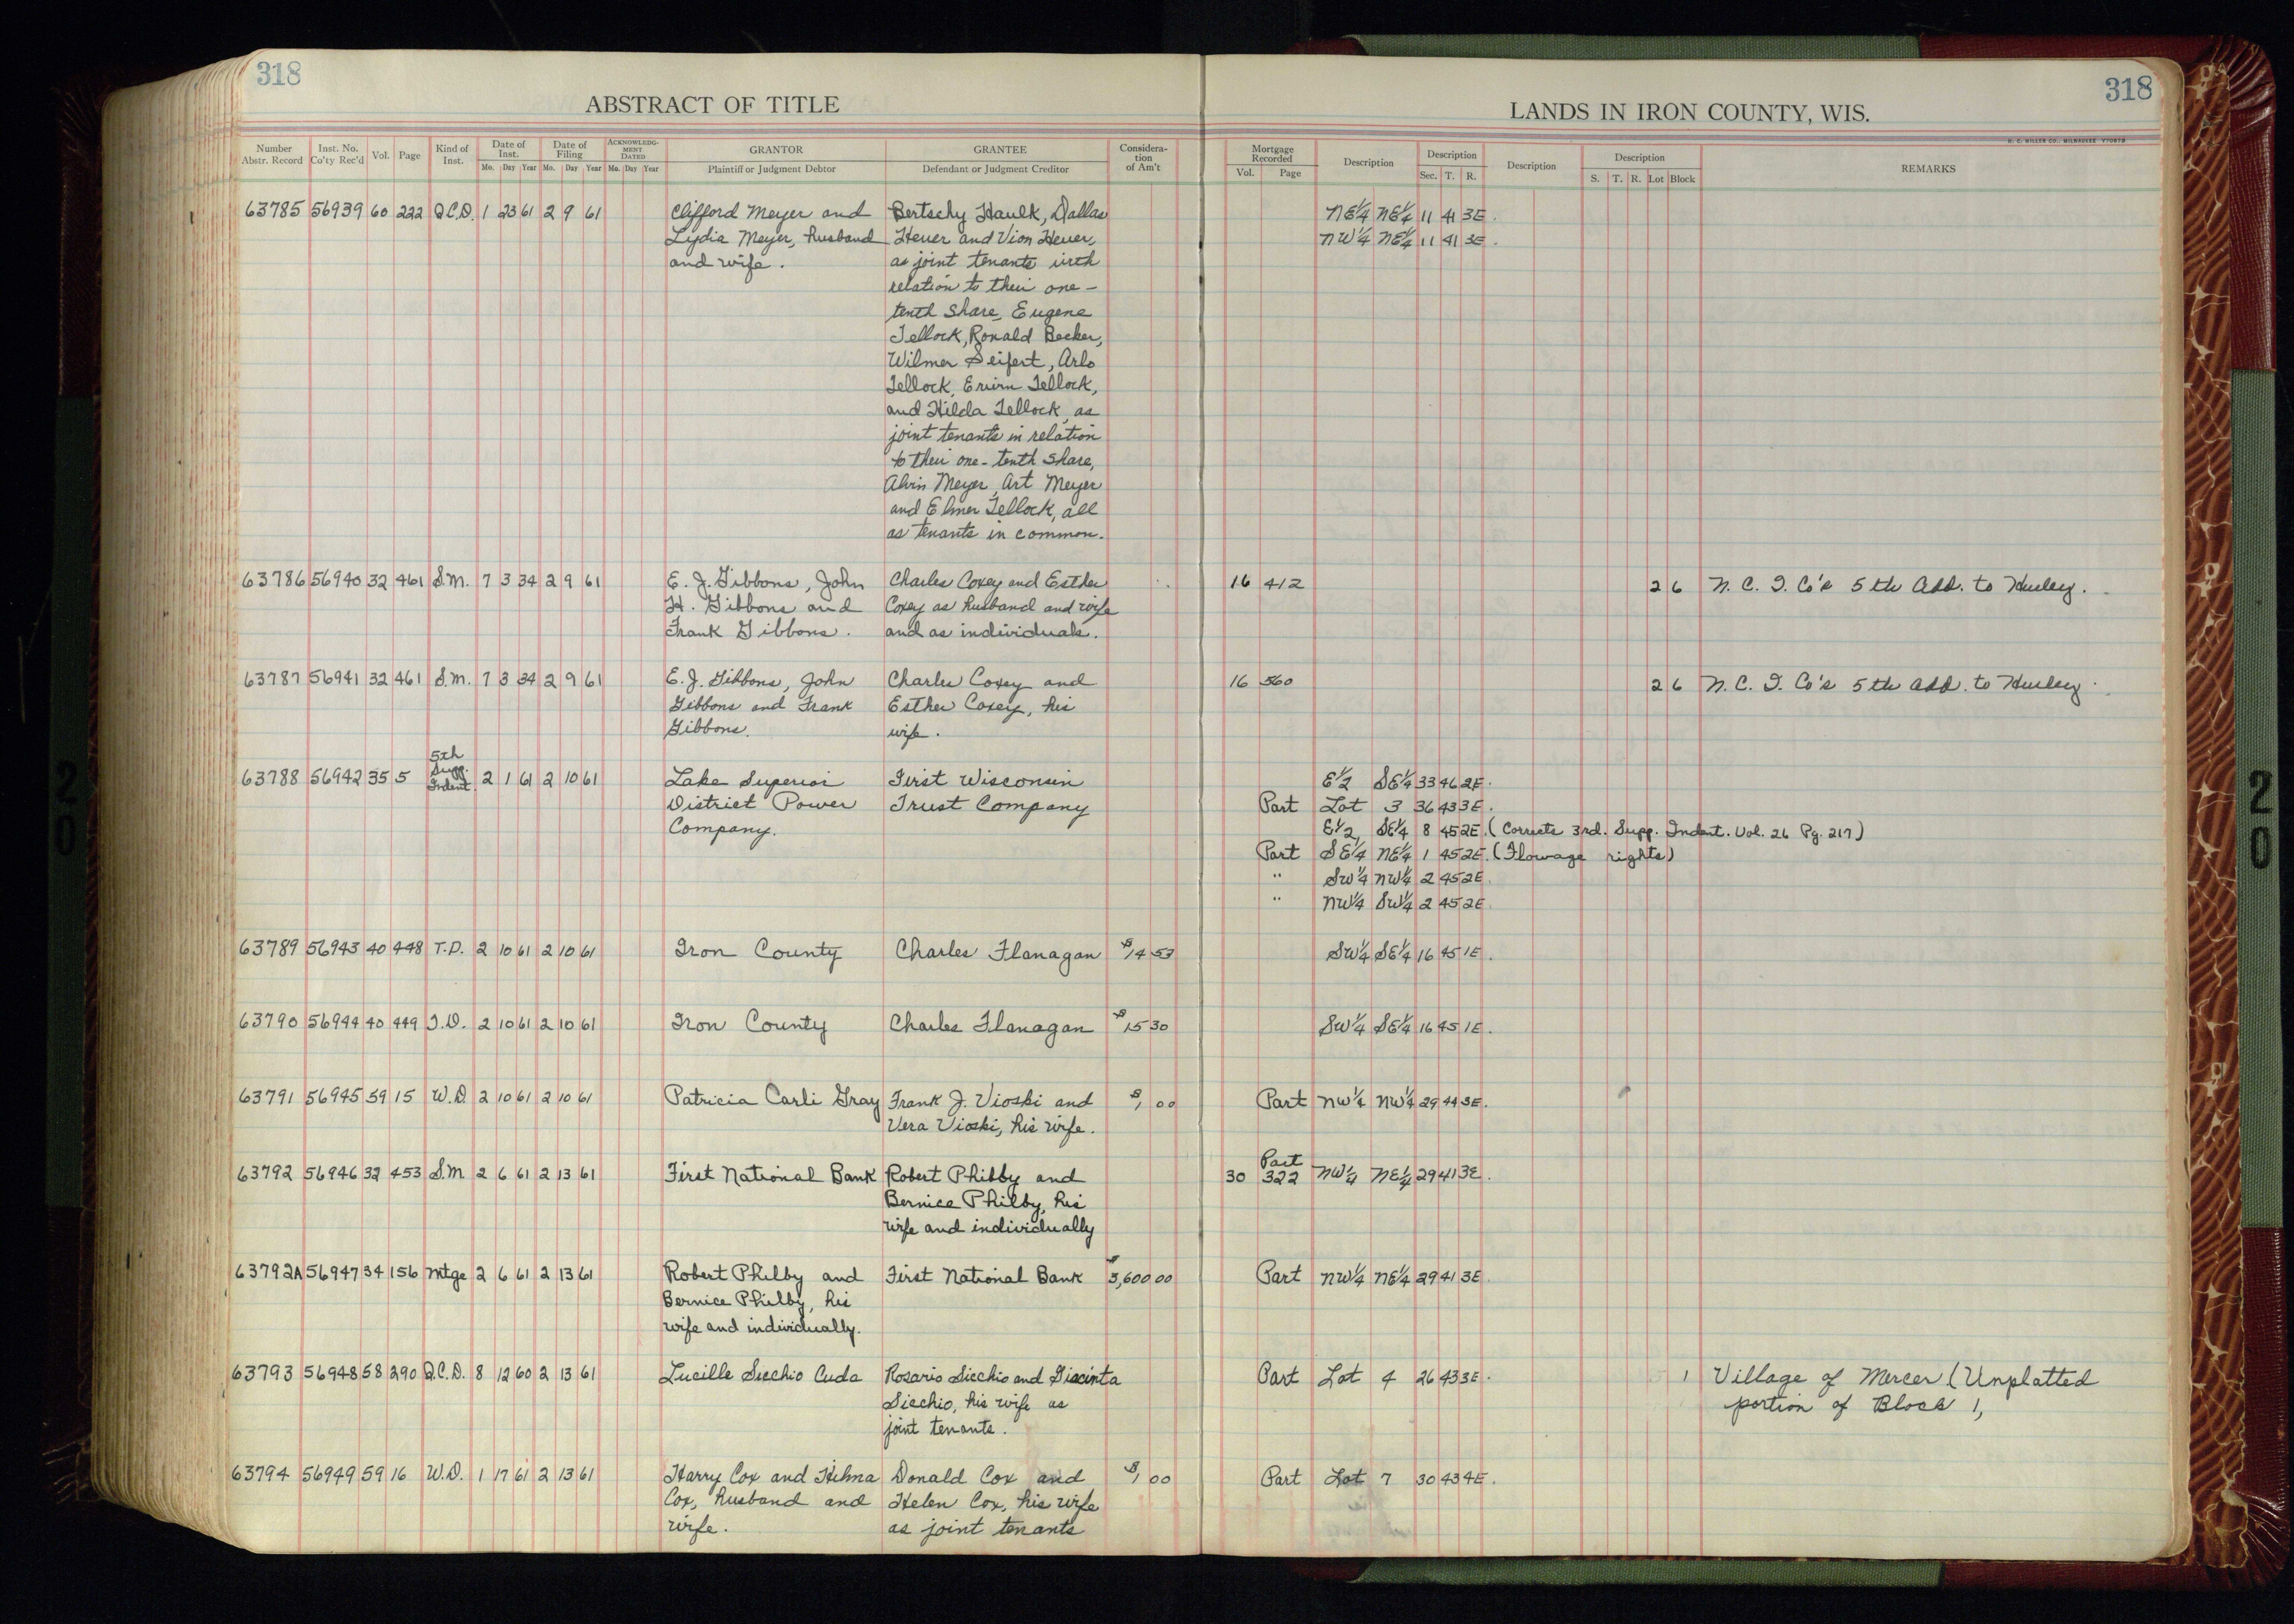 318
ABSTRACT OF TITLE
Number Abstr. Record | Inst. No. Co'ty Rec'd | Vol. | Page | Kind of Inst. | Date of Inst. Mo. Day Year | Date of Filing Mo. Day Year | ACKNOWLEDGMENT DATED Mo. Day Year | GRANTOR Plaintiff or Judgment Debtor | GRANTEE Defendant or Judgment Creditor | Consideration of Am't
318
LANDS IN IRON COUNTY, WIS.
H. C. MILLER CO., MILWAUKEE Y70878
Mortgage Recorded Vol. Page | Description | Description Sec. T. R. | Description | Description S. T. R. Lot Block | REMARKS
63785 56939 60 222 Q.C.D. 1 23 61 2 9 61 Clifford Meyer and Bertschy Haulk, Dallas NE¼ NE¼ 11 41 3E.
Lydia Meyer, husband Heuer and Vion Heuer, NW¼ NE¼ 11 41 3E.
and wife. as joint tenants with
relation to their one-
tenth share, Eugene
Tellock, Ronald Becker,
Wilmer Seifert, Arlo
Tellock, Ervin Tellock,
and Hilda Tellock, as
joint tenants in relation
to their one-tenth share,
Alvin Meyer, Art Meyer
and Elmer Tellock, all
as tenants in common.
63786 56940 32 461 S.M. 7 3 34 2 9 61 E. J. Gibbons, John Charles Coxey and Esther 16 412 2 6 N. C. I. Co's 5th Add. to Hurley.
H. Gibbons and Coxey as husband and wife
Frank Gibbons. and as individuals.
63787 56941 32 461 S.M. 7 3 34 2 9 61 E. J. Gibbons, John Charles Coxey and 16 560 2 6 N. C. I. Co's 5th Add. to Hurley.
Gibbons and Frank Esther Coxey, his
Gibbons. wife.
5th
Supp.
Indent.
63788 56942 35 5 2 1 61 2 10 61 Lake Superior First Wisconsin E½ SE¼ 33 46 2E.
District Power Trust Company Part Lot 3 36 43 3E.
Company. E½ SE¼ 8 45 2E. (Corrects 3rd. Supp. Indent. Vol. 26 Pg. 217)
Part SE¼ NE¼ 1 45 2E. (Flowage rights)
" SW¼ NW¼ 2 45 2E.
" NW¼ SW¼ 2 45 2E.
63789 56943 40 448 T.D. 2 10 61 2 10 61 Iron County Charles Flanagan $14 53 SW¼ SE¼ 16 45 1E.
63790 56944 40 449 T.D. 2 10 61 2 10 61 Iron County Charles Flanagan $15 30 SW¼ SE¼ 16 45 1E.
63791 56945 59 15 W.D. 2 10 61 2 10 61 Patricia Carli Gray Frank J. Vioski and $1 00 Part NW¼ NW¼ 29 44 3E.
Vera Vioski, his wife.
Part
63792 56946 32 453 S.M. 2 6 61 2 13 61 First National Bank Robert Philby and 30 322 NW¼ NE¼ 29 41 3E.
Bernice Philby, his
wife and individually
63792A 56947 34 156 Mtge 2 6 61 2 13 61 Robert Philby and First National Bank $3,600 00 Part NW¼ NE¼ 29 41 3E.
Bernice Philby, his
wife and individually.
63793 56948 58 290 Q.C.D. 8 12 60 2 13 61 Lucille Sicchio Cuda Rosario Sicchio and Giacinta Part Lot 4 26 43 3E. 1 Village of Mercer (Unplatted
Sicchio, his wife as portion of Block 1,
joint tenants.
63794 56949 59 16 W.D. 1 17 61 2 13 61 Harry Cox and Hilma Donald Cox and $1 00 Part Lot 7 30 43 4E.
Cox, husband and Helen Cox, his wife
wife. as joint tenants
20
20